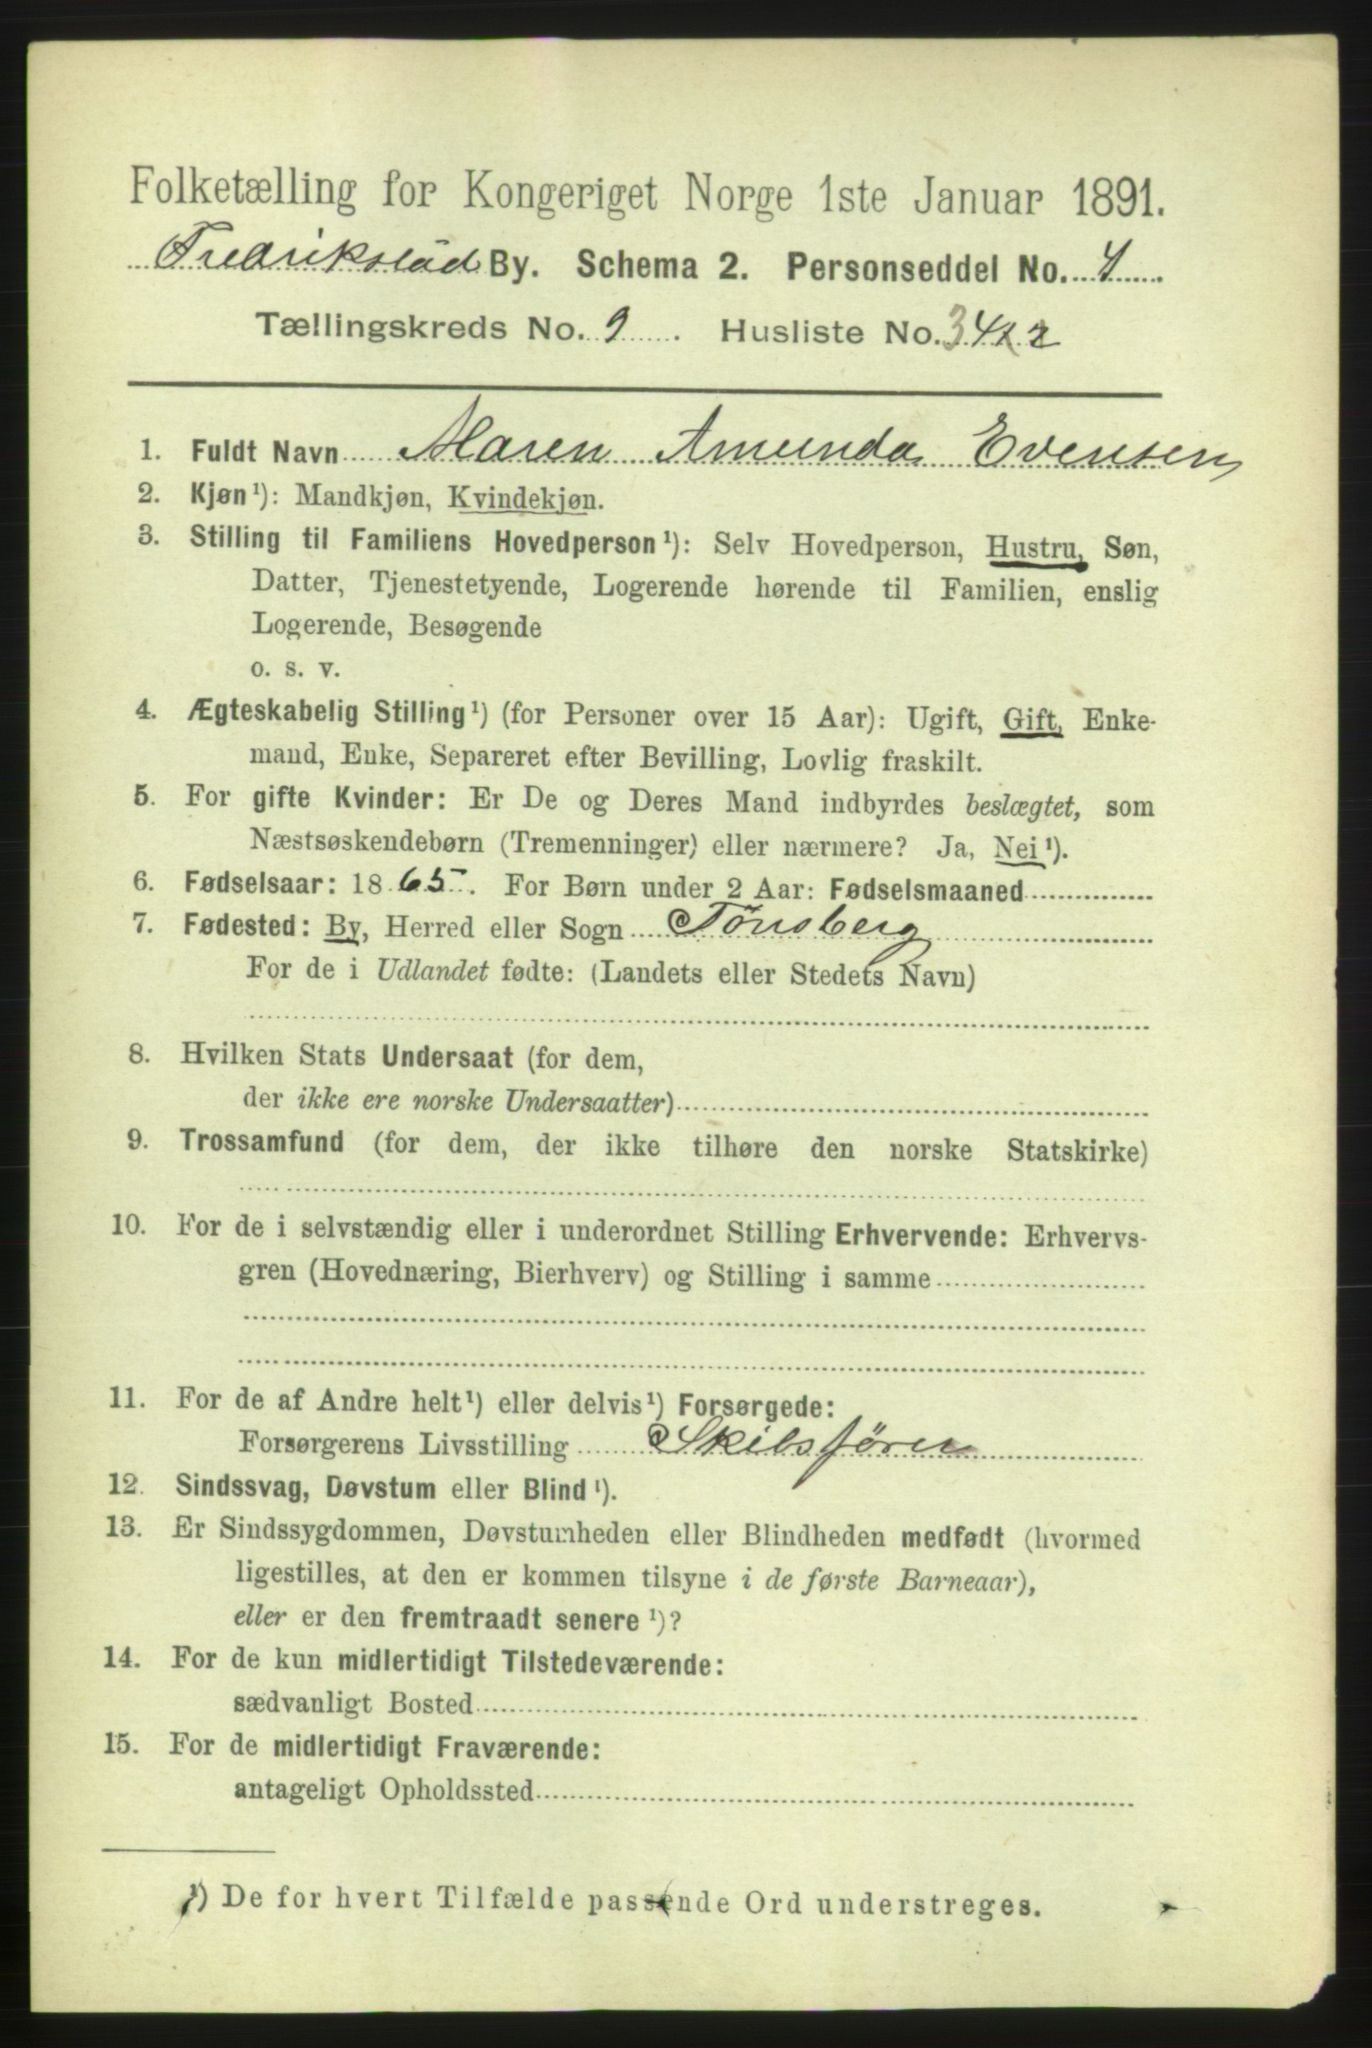 Folketælling for Kongeriget Norge 1ste Januar 1891.
Fredrikstad By. Schema 2. Personseddel No. 4
Tællingskreds No. 9. Husliste No.
1. Fuldt Navn Maren Amunda Evensen
2. Kjøn¹): Mandkjøn, Kvindekjøn.
3. Stilling til Familiens Hovedperson¹): Selv Hovedperson, Hustru, Søn,
Datter, Tjenestetyende, Logerende hørende til Familien, enslig
Logerende, Besøgende
o. s. v.
4. Ægteskabelig Stilling¹) (for Personer over 15 Aar): Ugift, Gift, Enke-
mand, Enke, Separeret efter Bevilling, Lovlig fraskilt.
5. For gifte Kvinder: Er De og Deres Mand indbyrdes beslægtet, som
Næstsøskendebørn (Tremenninger) eller nærmere? Ja, Nei¹).
6. Fødselsaar: 1865. For Børn under 2 Aar: Fødselsmaaned
7. Fødested: By, Herred eller Sogn Tønsberg
For de i Udlandet fødte: (Landets eller Stedets Navn)
8. Hvilken Stats Undersaat (for dem,
der ikke ere norske Undersaatter)
9. Trossamfund (for dem, der ikke tilhøre den norske Statskirke)
10. For de i selvstændig eller i underordnet Stilling Erhvervende: Erhvervs-
gren (Hovednæring, Bierhverv) og Stilling i samme
11. For de af Andre helt¹) eller delvis¹) Forsørgede:
Forsørgerens Livsstilling Skibsfører
12. Sindssvag, Døvstum eller Blind¹).
13. Er Sindssygdommen, Døvstumheden eller Blindheden medfødt (hvormed
ligestilles, at den er kommen tilsyne i de første Barneaar),
eller er den fremtraadt senere¹)?
14. For de kun midlertidigt Tilstedeværende:
sædvanligt Bosted
15. For de midlertidigt Fraværende:
antageligt Opholdssted
¹) De for hvert Tilfælde passende Ord understreges.